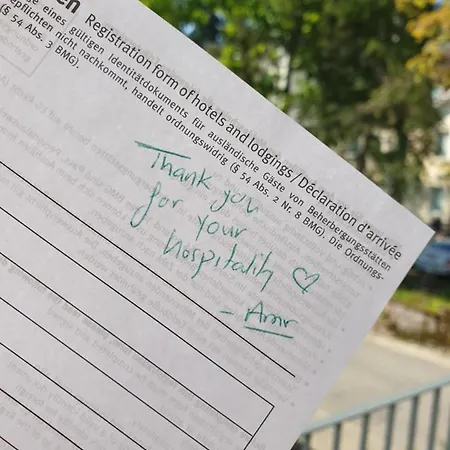 en
Registration form of hotels and lodgings / Déclaration d'arrivée
e eines gültigen Identitätdokuments für ausländische Gäste von Beherbergungsstätten
epflichten nicht nachkommt, handelt ordnungswidrig (§ 54 Abs. 2 Nr. 8 BMG). Die Ordnungs-
(§ 54 Abs. 3 BMG).
Thank you
for your
hospitality ♡
- Amr